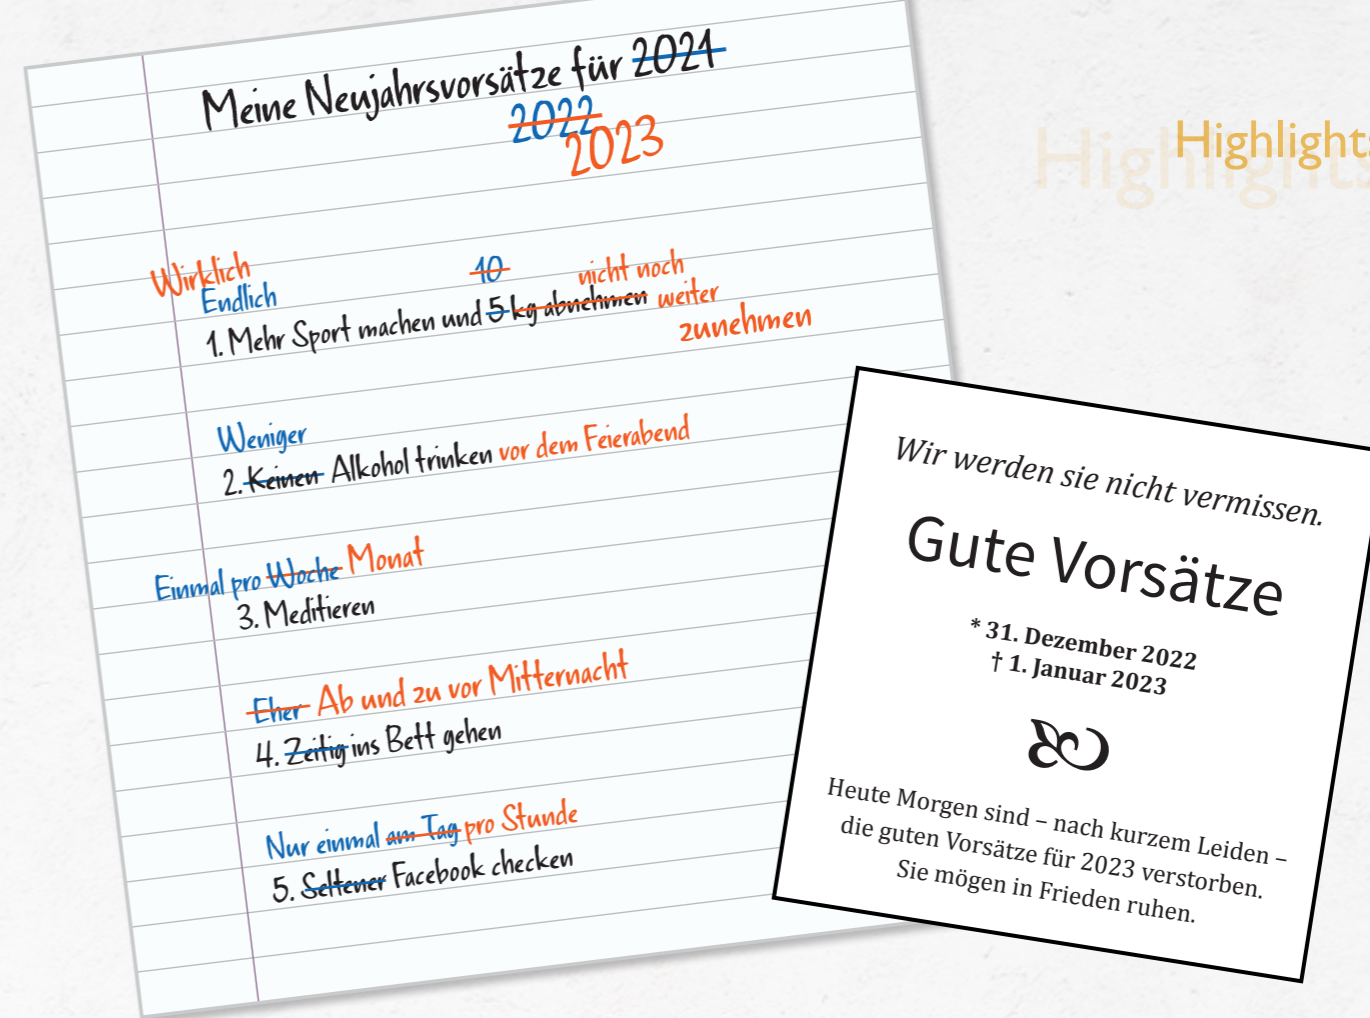 Meine Neujahrsvorsätze für 2021
2022
2023
Highlights
Highlights
Wirklich
Endlich
10
nicht noch
1. Mehr Sport machen und 5 kg abnehmen weiter
zunehmen
Weniger
2. Keinen Alkohol trinken vor dem Feierabend
Einmal pro Woche Monat
3. Meditieren
Eher Ab und zu vor Mitternacht
4. Zeitig ins Bett gehen
Nur einmal am Tag pro Stunde
5. Seltener Facebook checken
Wir werden sie nicht vermissen.
Gute Vorsätze
* 31. Dezember 2022
† 1. Januar 2023
Heute Morgen sind – nach kurzem Leiden –
die guten Vorsätze für 2023 verstorben.
Sie mögen in Frieden ruhen.